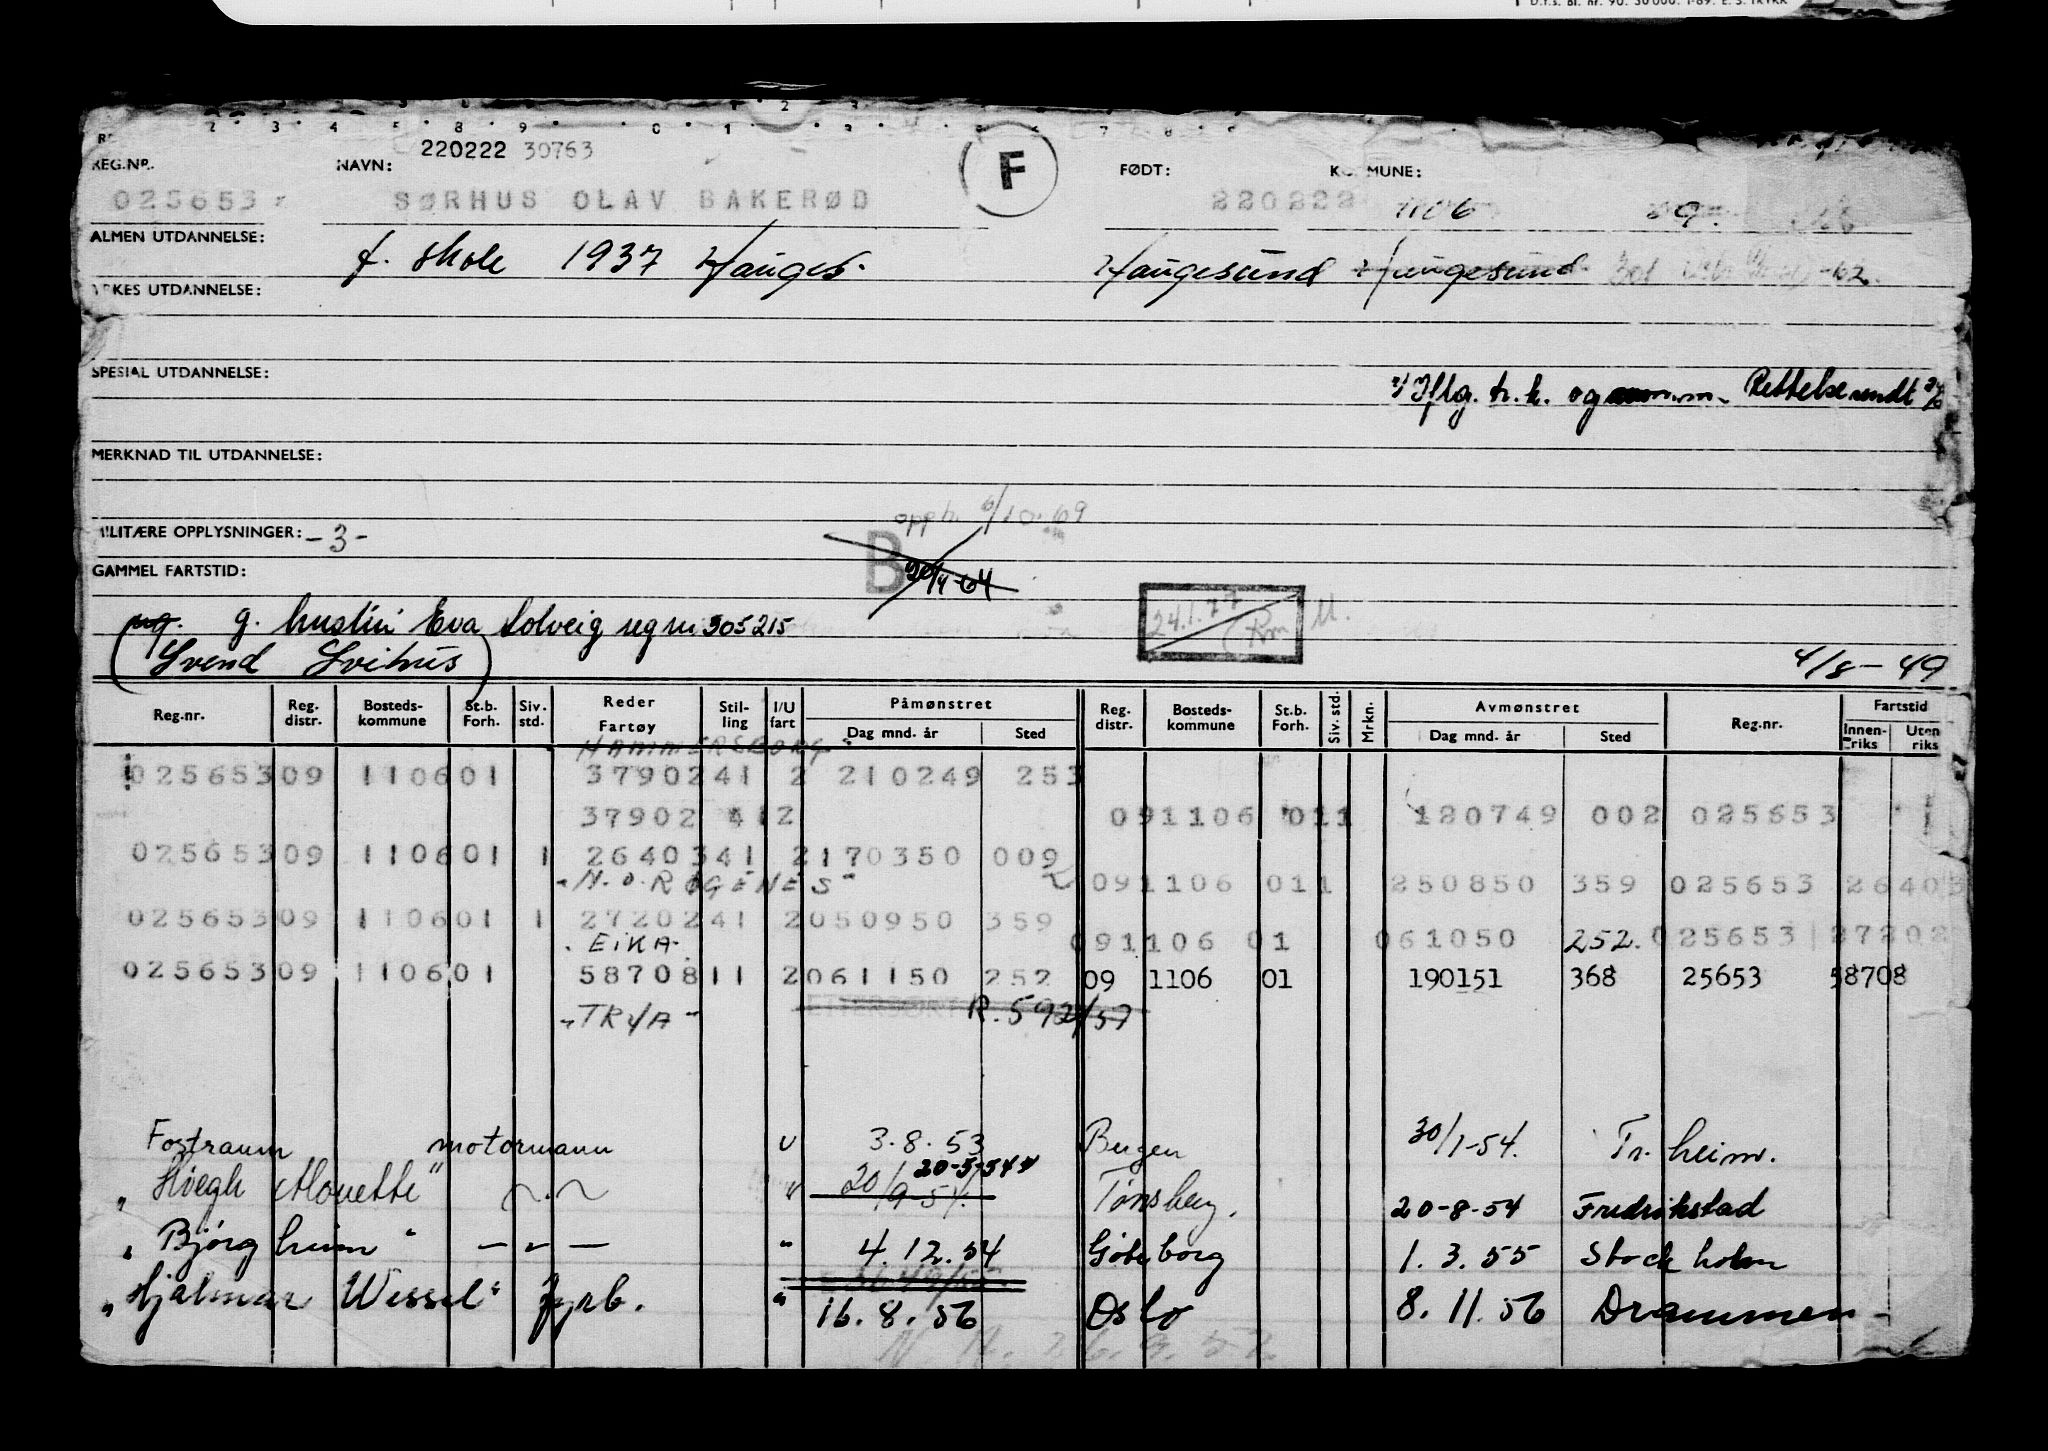 D.f.s. Bl. nr. 90. 30 000. 1-69. E. S. TRYKK
220222 30763
REG.NR. NAVN: F FØDT: KOMMUNE:
025653 SØRHUS OLAV BAKERØD 220222 1106 09.
ALMEN UTDANNELSE: f. skole 1937 Hauges. Haugesund Haugesund 301 -62.
YRKES UTDANNELSE:
SPESIAL UTDANNELSE:
Iflg. h.k. og Rettelse sendt
MERKNAD TIL UTDANNELSE:
opph. 6/10.69
MILITÆRE OPPLYSNINGER: -3-
B 20/4-64
GAMMEL FARTSTID:
ug. g. hustru Eva Solveig reg nr 305215
24.1.77 Rm U.
(Svend Svihus) 4/8-49
Reg.nr. Reg. distr. Bosteds-kommune St.b. Forh. Siv. std. Reder Fartøy Stil-ling I/U fart Påmønstret Dag mnd. år Sted Reg. distr. Bosteds-kommune St.b. Forh. Siv. std. Mrkn. Avmønstret Dag mnd. år Sted Reg.nr. Fartstid Innen-riks Uten riks
"HAMMERSBORG"
025653 09 1106 01 3790241 2 210249 253
37902 412 091106 011 120749 002 025653 1
025653 09 1106 01 1 2640341 2 170350 009
"H.O.RØGENES" 091106 011 250850 359 025653 26403
025653 09 1106 01 1 2720241 2 050950 359
"EIKA" 091106 01 061050 252. 025653 27202
025653 09 1106 01 5870811 2 061150 252 09 1106 01 190151 368 25653 58708
"TRYA" R. 592/57
Fostraum motormann u 3.8.53 Bergen 30/1-54. Tr.heim.
20-5-54
"Høegh Mouette" 20/9-54. Tønsberg. 20-8-54 Fredrikstad
"Bjørgheim" — " — " 4.12.54 Göteborg 1.3.55 Stockholm
"Hjalmar Wessel" fyrb. " 16.8.56 Oslo 8.11.56 Drammen